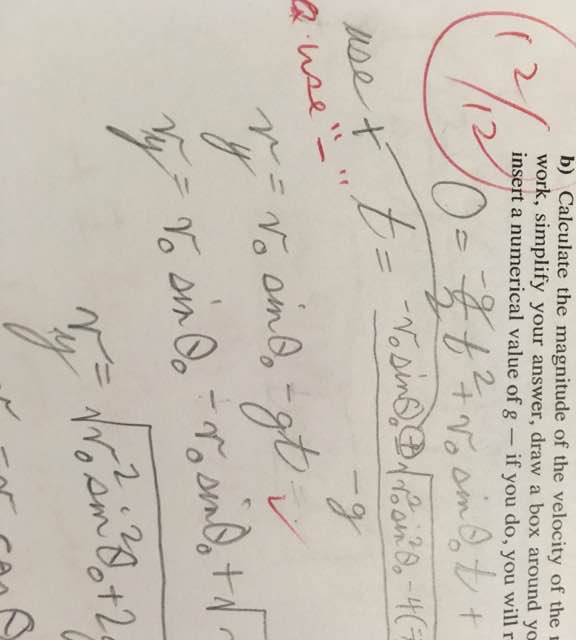 b) Calculate the magnitude of the velocity of the
work, simplify your answer, draw a box around
insert a numerical value of g — if you do, you will
12/12
0 = -g/2 t² + v₀ sinθ₀ t +
use +
t = -v₀ sinθ₀ ⊕ √v₀² sin²θ₀ - 4(
-g
use "-"
v_y = v₀ sinθ₀ - gt
v_y = v₀ sinθ₀ - v₀ sinθ₀ + √
v_y = √v₀² sin²θ₀ + 2